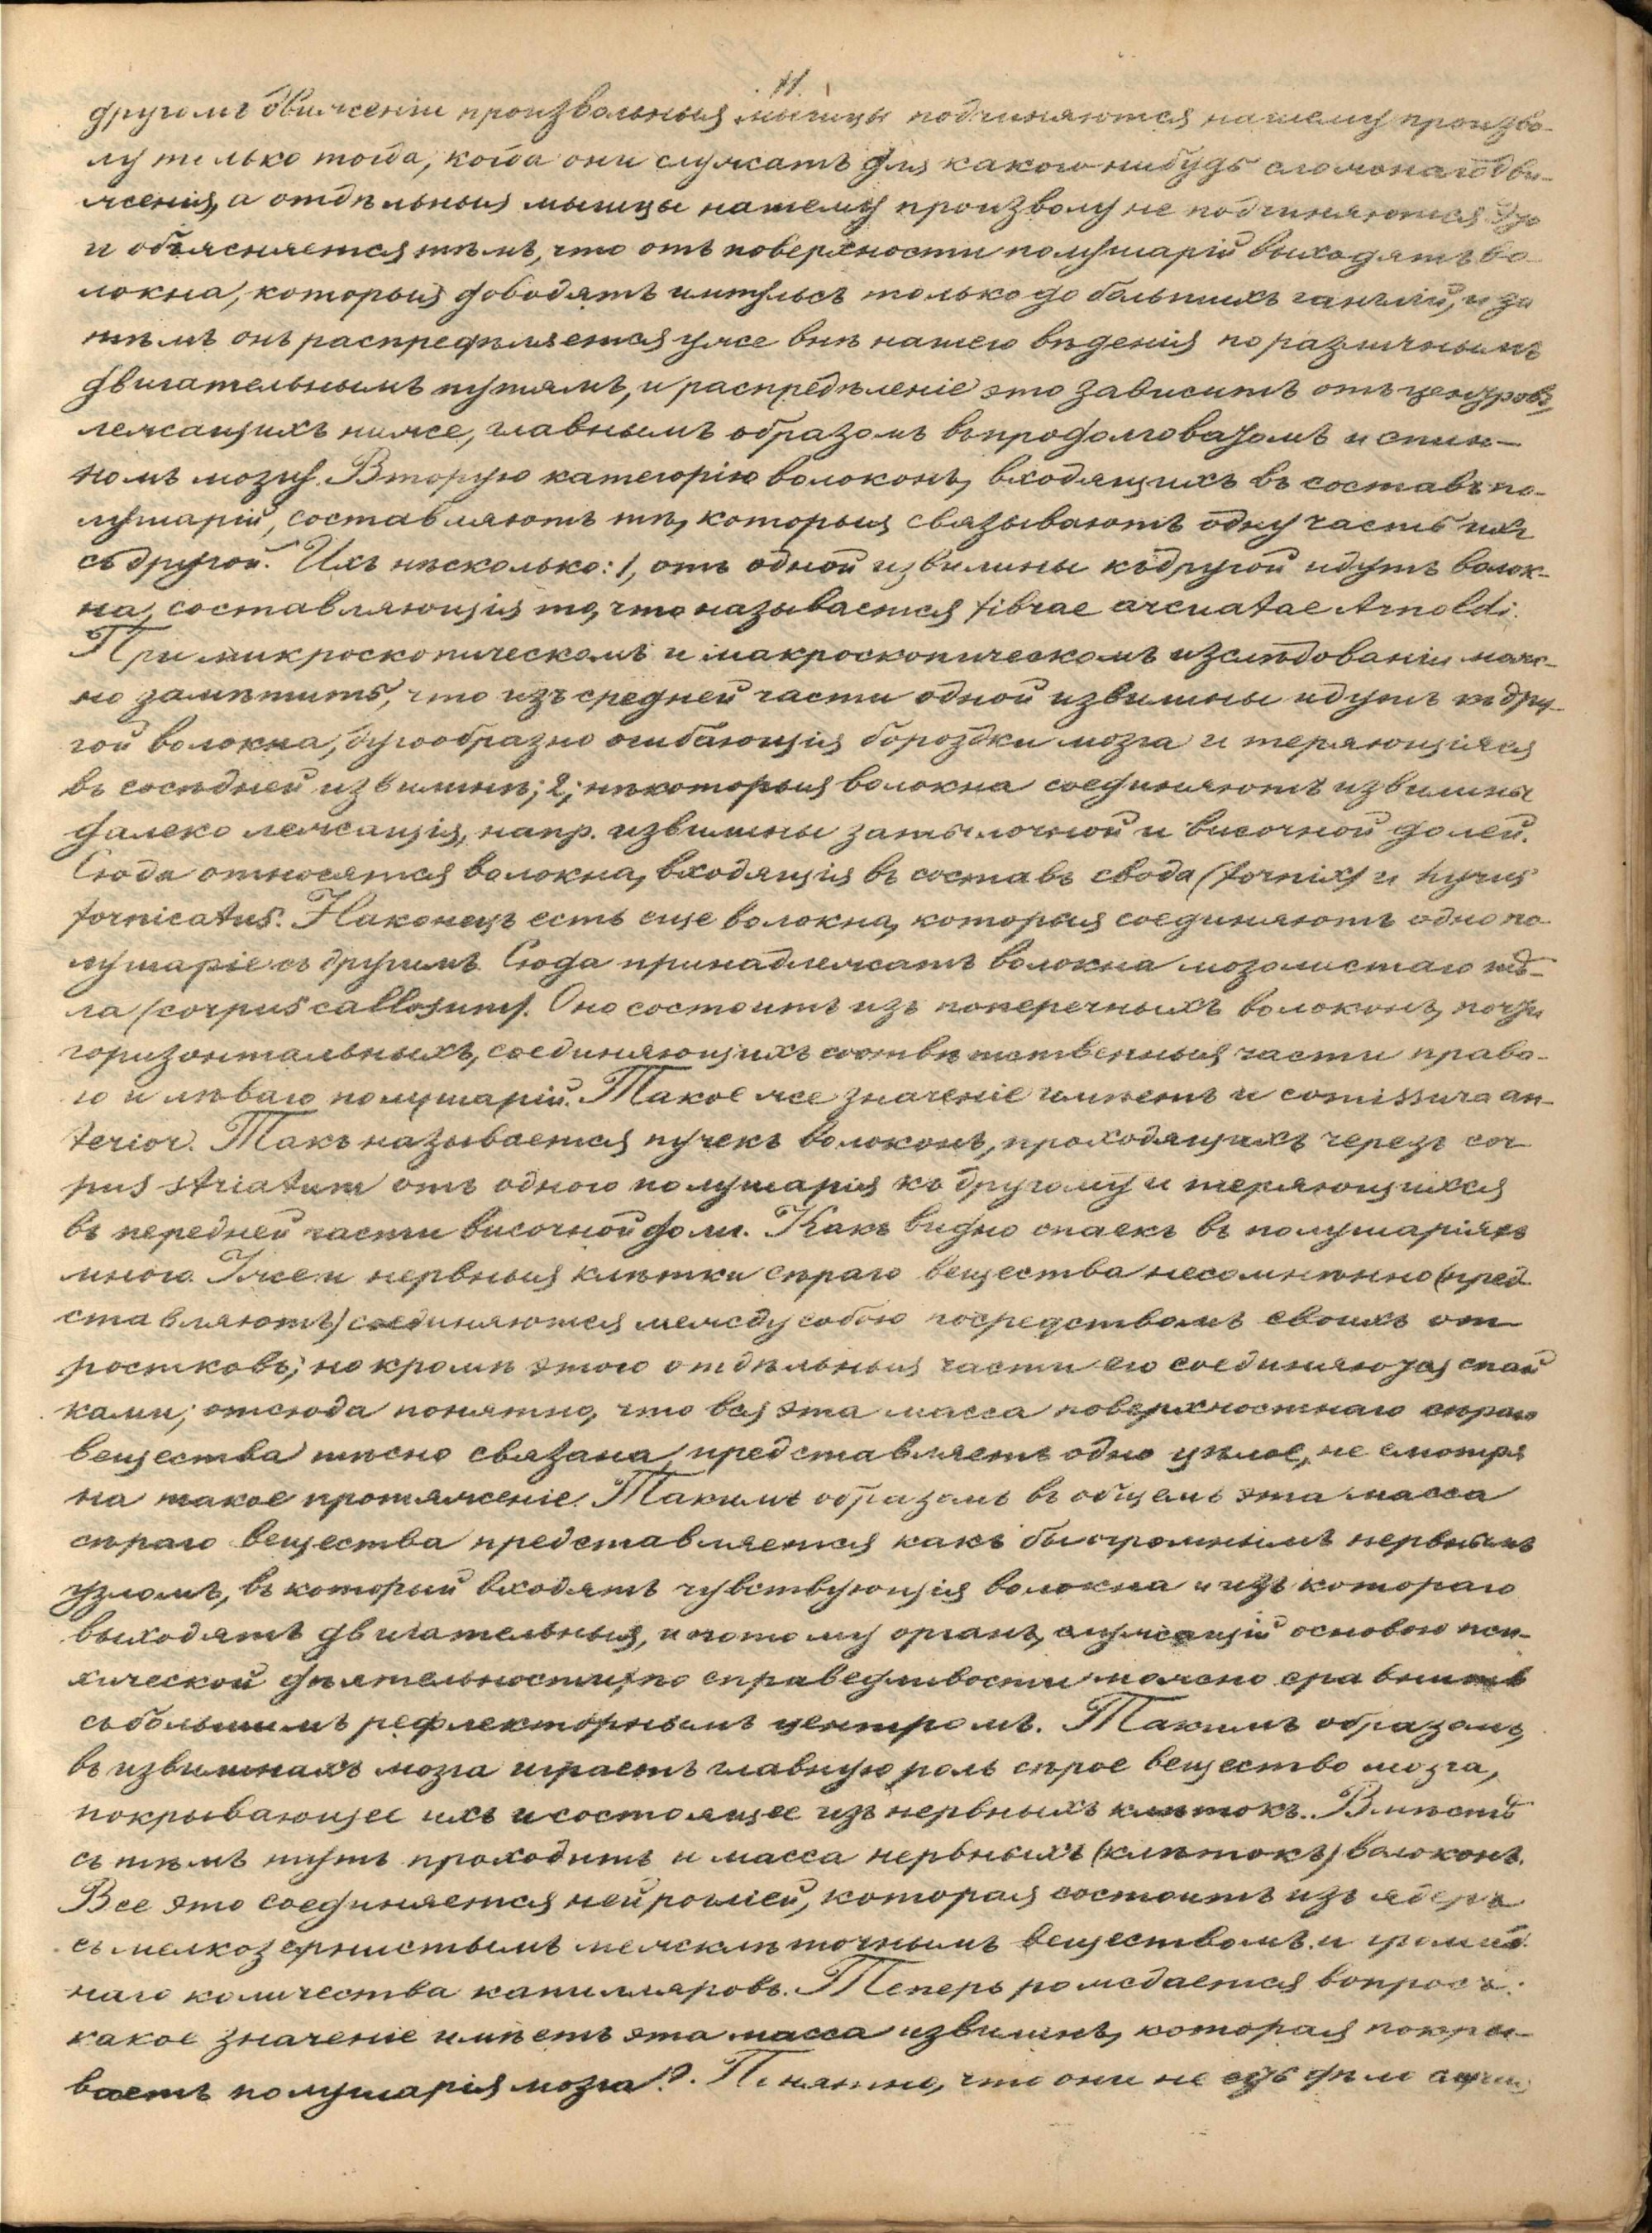 11.
другомъ движеніи произвольныя мышцы подчиняются нашему произво-
лу только тогда, когда они служатъ для какого-нибудь сложнаго дви-
женія, а отдѣльныя мышцы нашему произволу не подчиняются. Это
и объясняется тѣмъ, что отъ поверхности полушарій выходятъ во-
локна, которыя доводятъ импульсъ только до большихъ ганглій, и за
тѣмъ онъ распредѣляется уже внѣ нашего вѣденія по различнымъ
двигательнымъ путямъ, и распредѣленіе это зависитъ отъ центровъ,
лежащихъ ниже, главнымъ образомъ въ продолговатомъ и спин-
номъ мозгу. Вторую категорію волоконъ, входящихъ въ составъ по-
лушарій, составляютъ тѣ, которыя связываютъ одну часть ихъ
съ другой. Ихъ нѣсколько: 1, отъ одной извилины къ другой идутъ волок-
на, составляющія то, что называется fibrae arcuatae Arnoldi.
При микроскопическомъ и макроскопическомъ изслѣдованіи мож-
но замѣтить, что изъ средней части одной извилины идутъ къ дру-
гой волокна, дугообразно огибающія бороздки мозга и теряющіяся
въ сосѣдней извилинѣ; 2, нѣкоторыя волокна соединяютъ извилины
далеко лежащія, напр. извилины затылочной и височной долей.
Сюда относятся волокна, входящія въ составъ свода (fornix) и hyrus
fornicatus. Наконецъ есть еще волокна, которыя соединяютъ одно по-
лушаріе съ другимъ. Сюда принадлежатъ волокна мозолистаго тѣ-
ла (corpus callosum). Оно состоитъ изъ поперечныхъ волоконъ, почти
горизонтальныхъ, соединяющихъ соотвѣтственныя части право-
го и лѣваго полушарій. Такое же значеніе имѣетъ и comissura an-
terior. Такъ называется пучекъ волоконъ, проходящихъ черезъ cor
pus striatum отъ одного полушарія къ другому и теряющихся
въ передней части височной доли. Какъ видно спаекъ въ полушаріяхъ
много. Уже и нервныя клѣтки сѣраго вещества несомнѣнно (пред
ставляютъ) соединяются между собою посредствомъ своихъ от
ростковъ; но кромѣ этого отдѣльныя части его соединяются спай
ками; отсюда понятно, что вся эта масса поверхностнаго сѣраго
вещества тѣсно связана, представляетъ одно цѣлое, не смотря
на такое протяженіе. Такимъ образомъ въ общемъ эта масса
сѣраго вещества представляется какъ бы огромнымъ нервнымъ
узломъ, въ который входятъ чувствующія волокна и изъ котораго
выходятъ двигательныя, и потому органъ, служащій основою пси-
хической дѣятельности, по справедливости можно сравнить
съ большимъ рефлекторнымъ центромъ. Такимъ образомъ,
въ извилинахъ мозга играетъ главную роль сѣрое вещество мозга,
покрывающее ихъ и состоящее изъ нервныхъ клѣтокъ. Вмѣстѣ
съ тѣмъ тутъ проходитъ и масса нервныхъ (клѣтокъ) волоконъ.
Все это соединяется нейрогліей, которая состоитъ изъ ядеръ
съ мелкозернистымъ межклѣточнымъ веществомъ и громад
наго количества капилляровъ. Теперь рождается вопросъ:
какое значеніе имѣетъ эта масса извилинъ, которая покры-
ваетъ полушарія мозга?. Понятно, что они не суть дѣло